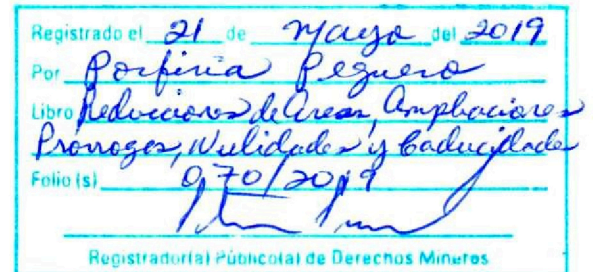 Registrado el 21 de Mayo del 2019
Por Porfiria Peguero
Libro Reducciones de Areas, Ampliaciones
Prorrogas, Nulidades y Caducidades
Folio (s) 070/2019
Registrador(a) Público(a) de Derechos Mineros